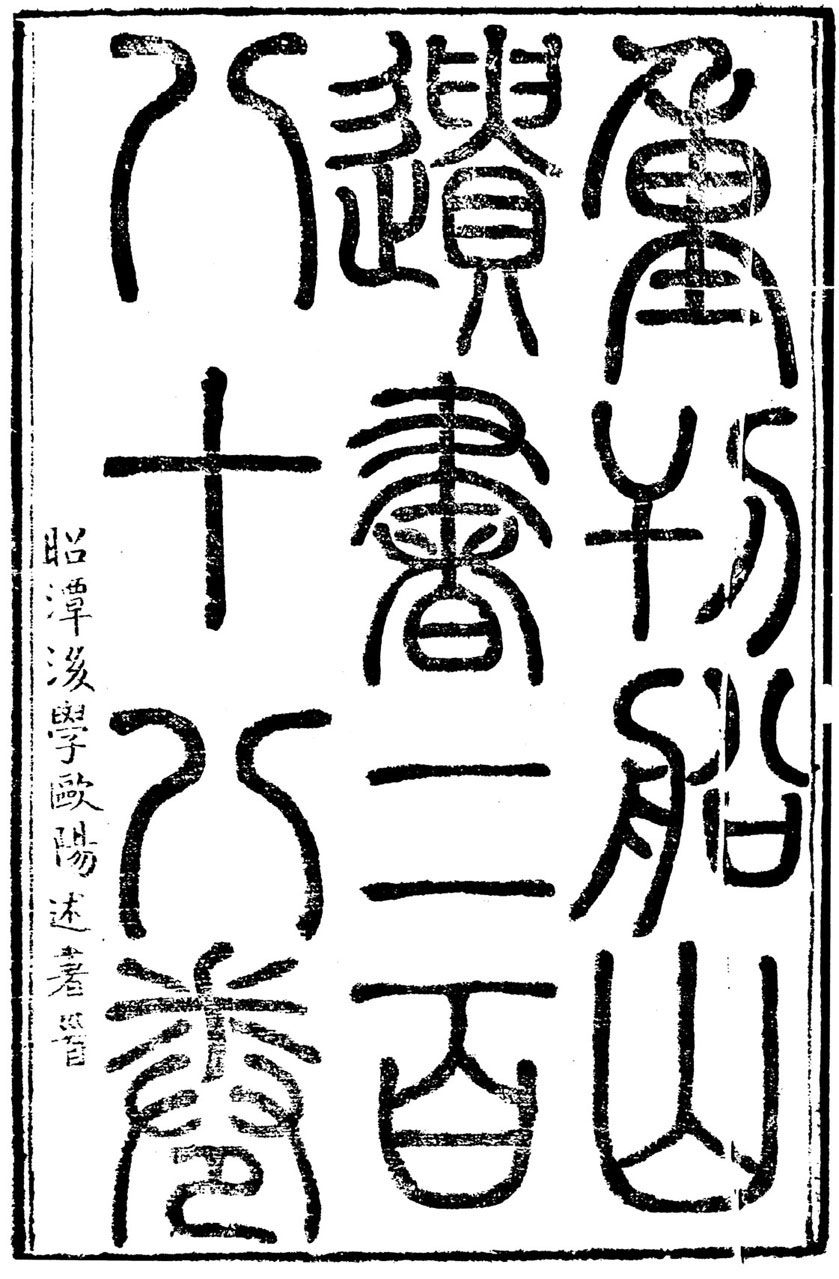 重刊船山
遺書二百
八十八卷
昭潭後學歐陽述書首